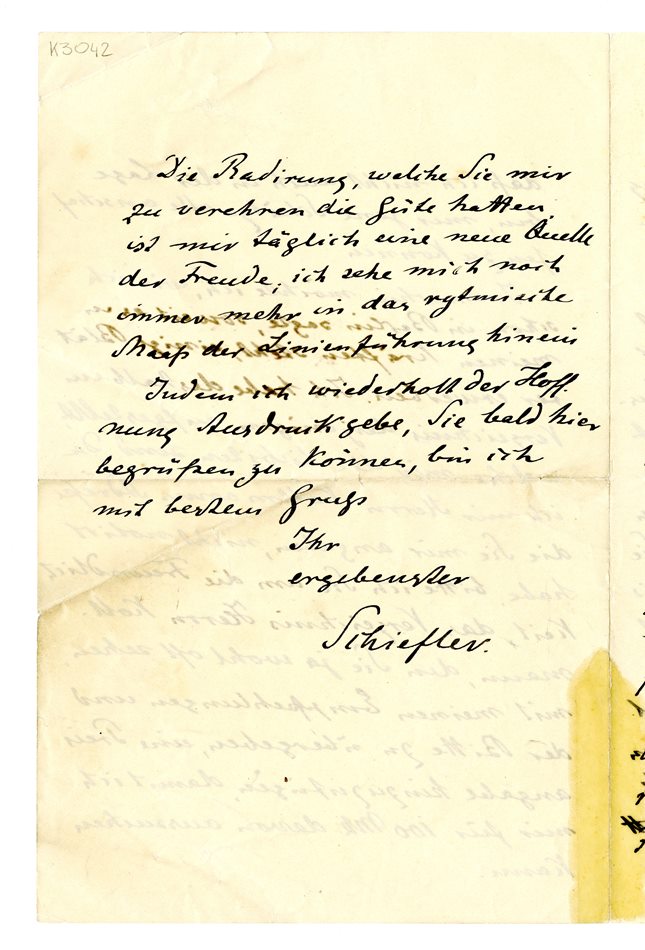 K3042
Die Radirung, welche Sie mir
zu verehren die Güte hatten,
ist mir täglich eine neue Quelle
der Freude; ich sehe mich noch
immer mehr in das rytmische
Maaß der Linienführung hinein
Indem ich wiederholt der Hoff
nung Ausdruck gebe, Sie bald hier
begrüßen zu können, bin ich
mit bestem Gruß
Ihr
ergebenster
Schiefler.